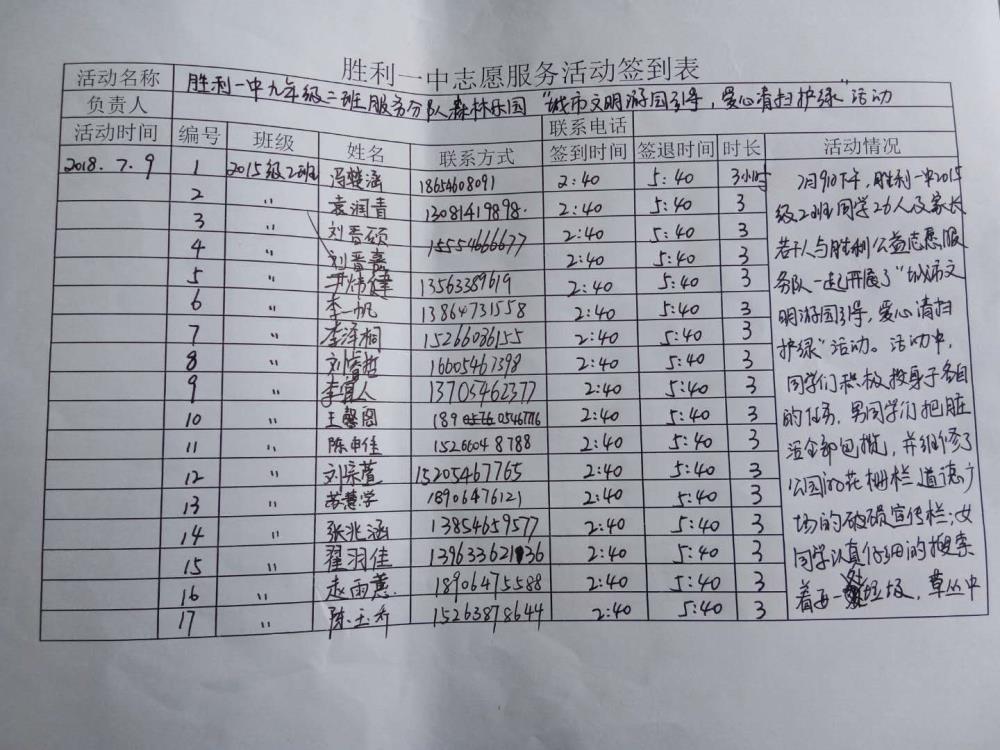 胜利一中志愿服务活动签到表
活动名称 胜利一中九年级二班服务分队森林乐园“城市文明游园引导，爱心清扫护绿”活动
负责人 联系电话
活动时间 编号 班级 姓名 联系方式 签到时间 签退时间 时长 活动情况
2018.7.9 1 2015级2班 冯楚涵 18654608091 2:40 5:40 3小时
2 〃 袁润青 13081419898. 2:40 5:40 3
3 〃 刘晋硕 15554666677 2:40 5:40 3
4 〃 刘晋嘉 2:40 5:40 3
5 〃 尹炜健 13563389619 2:40 5:40 3
6 〃 李一帆 13864731558 2:40 5:40 3
7 〃 李泽桐 15266036155 2:40 5:40 3
8 〃 刘睿哲 16605467398 2:40 5:40 3
9 〃 李宜人 13705462377 2:40 5:40 3
10 〃 王馨阁 189 05467716 2:40 5:40 3
11 〃 陈申佳 15266048788 2:40 5:40 3
12 〃 刘宗萱 15205467765 2:40 5:40 3
13 〃 苏慧学 18906476121 2:40 5:40 3
14 〃 张兆涵 13854659577 2:40 5:40 3
15 〃 翟羽佳 13963362136 2:40 5:40 3
16 〃 赵雨蕙. 18906475588 2:40 5:40 3
17 〃 陈玉乔 15263878644 2:40 5:40 3
7月9日下午，胜利一中2015
级2班同学26人及家长
若干人与胜利公益志愿服
务队一起开展了“城市文
明游园引导，爱心清扫
护绿”活动。活动中，
同学们积极投身于各自
的任务，男同学们把脏
活全部包揽，并维修了
公园的花栅栏 道德广
场的破损宣传栏；女
同学认真仔细的搜索
着每一处垃圾，草丛中